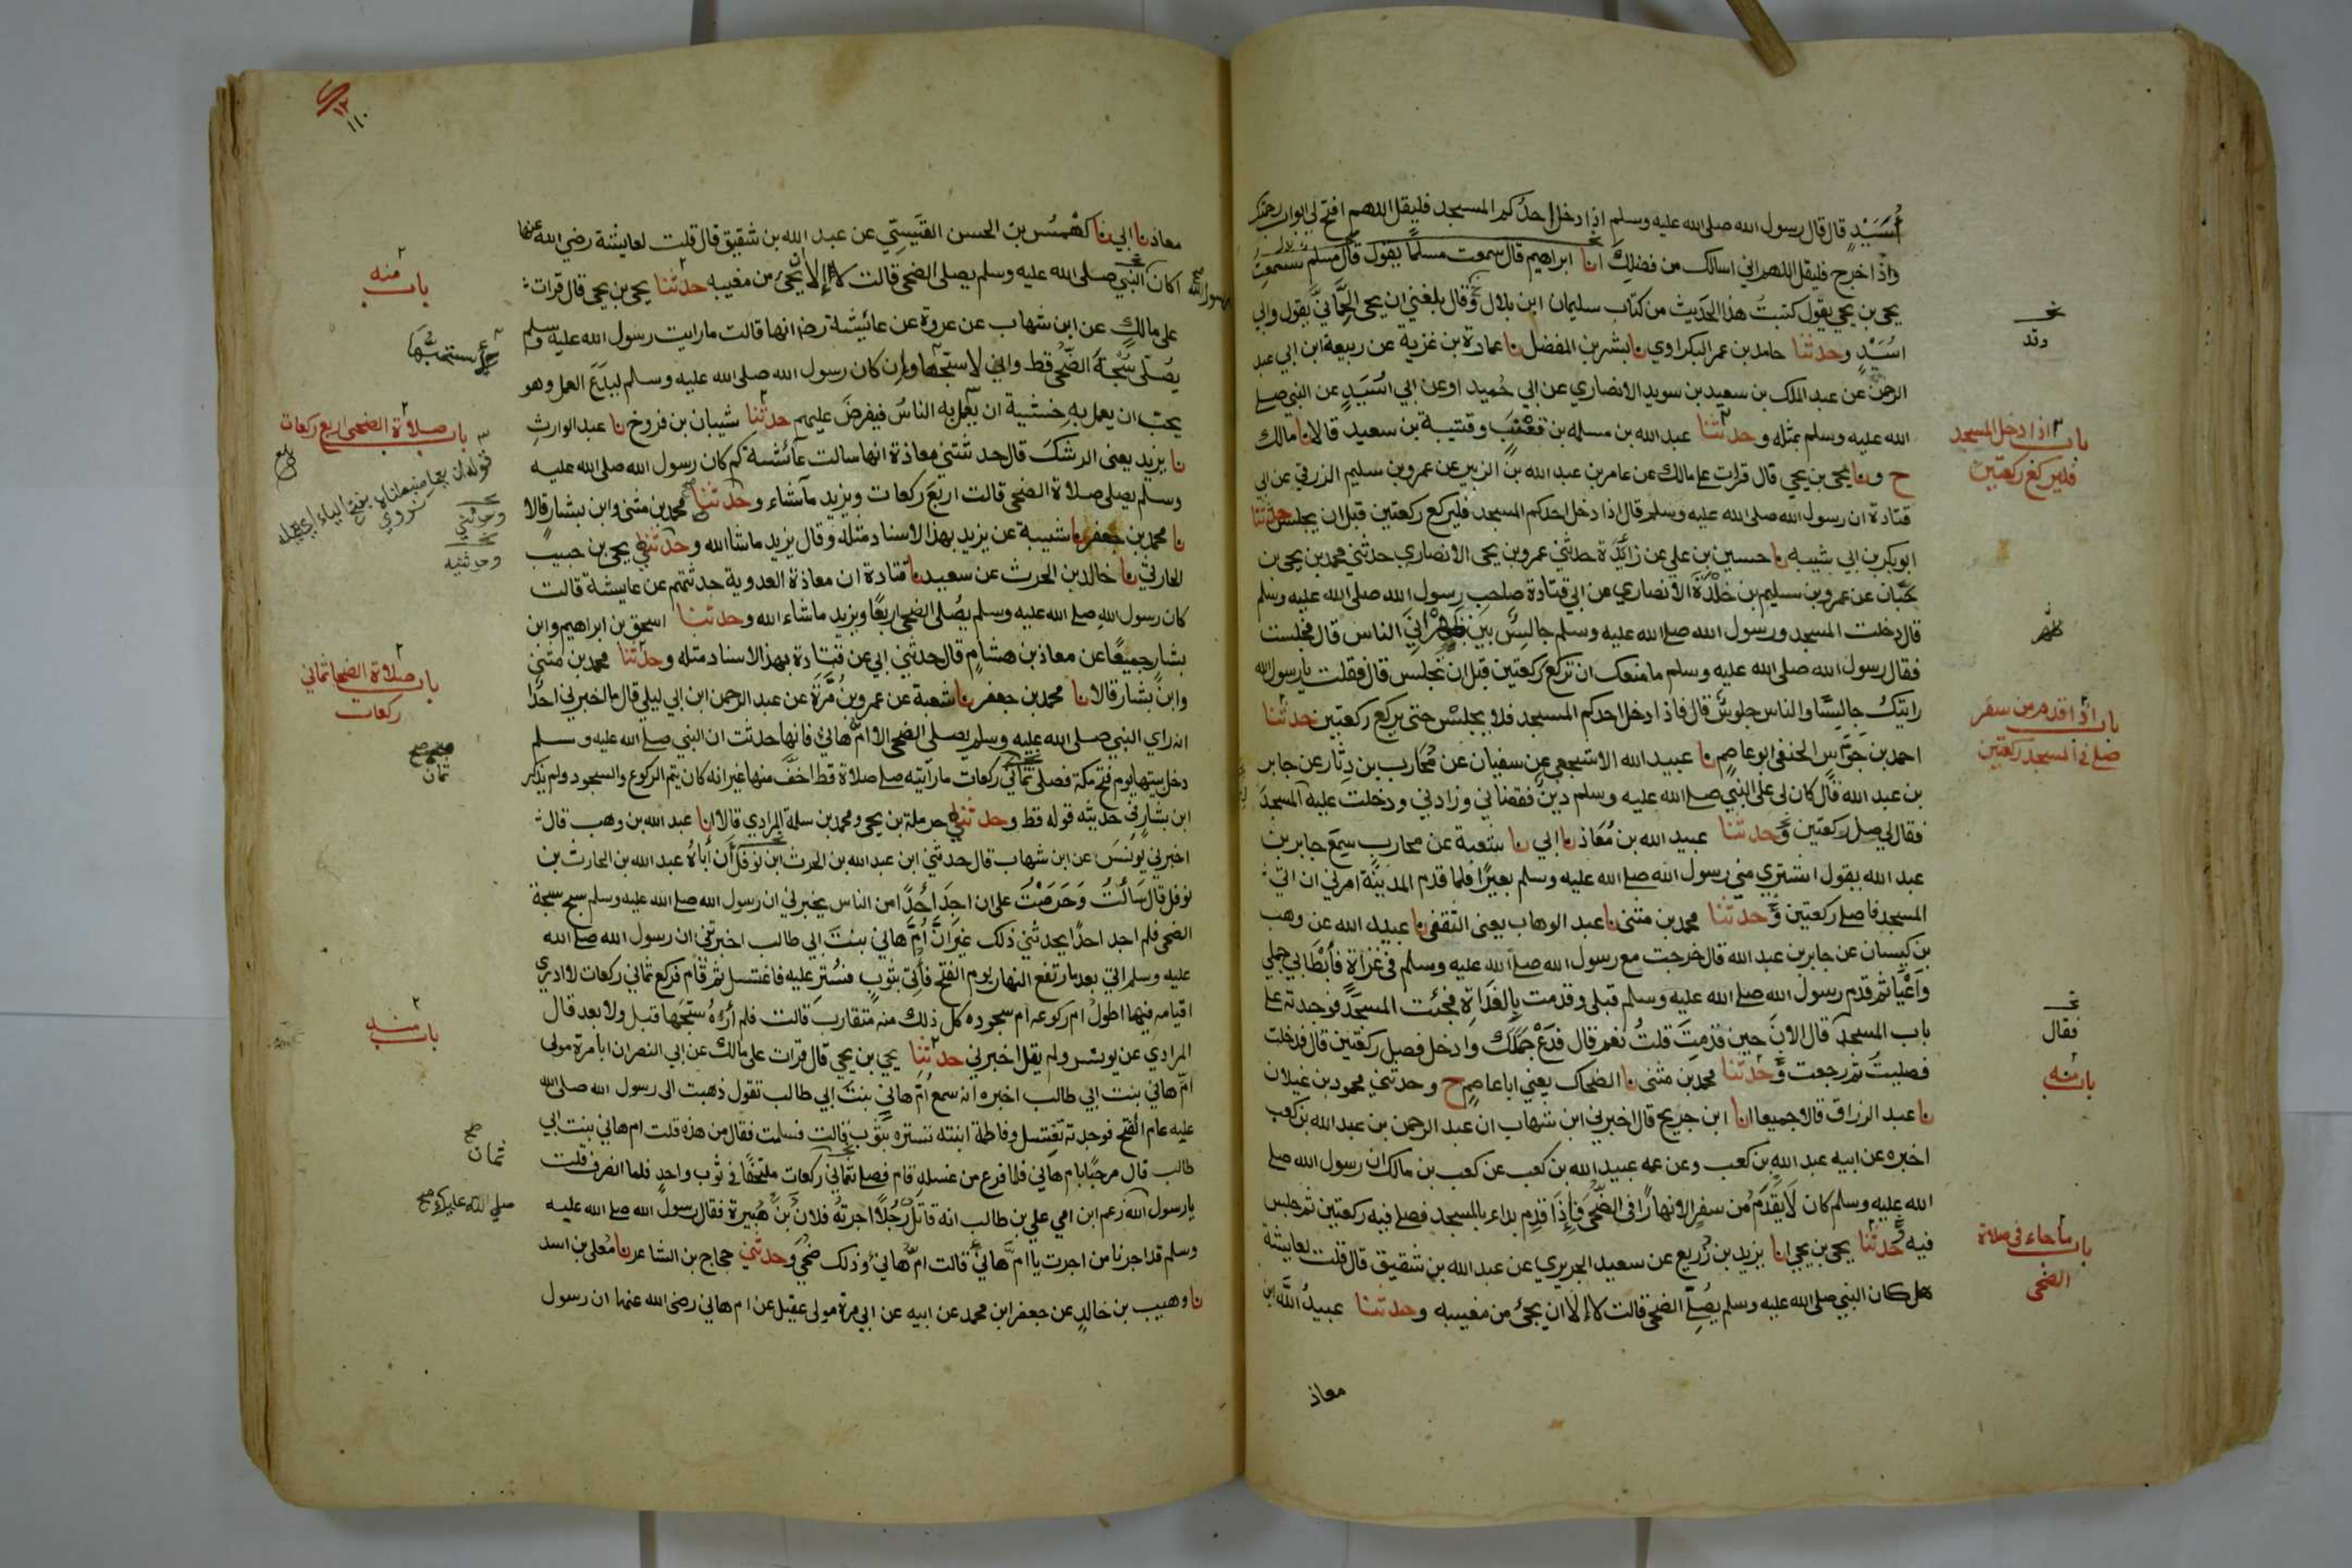 أُسَيْدٍ قال قال رسول الله صلى الله عليه وسلم اذا دخل احدكم المسجد فليقل اللهم افتح لي ابواب رحمتك
واذا خرج فليقل اللهم اني اسالك من فضلك انا ابراهيم قال سمعت مسلمًا يقول قال مسلم سمعت
يحيى بن يحيى يقول كتبت هذا الحديث من كتاب سليمان ابن بلال وقال بلغني ان يحيى الحِمَّاني يقول وابي
اسَيْدٍ وحدثنا حامد بن عمر البكراوي نا بشر بن المفضل نا عمارة بن غزية عن ربيعة ابن ابي عبد
الرحمن عن عبد الملك بن سعيد بن سويد الانصاري عن ابي حُميد او عن ابي اُسَيدٍ عن النبي صلى
الله عليه وسلم بمثله وحدثنا عبد الله بن مسلمه بن قعْنَب وقتيبة بن سعيد قالا نا مالك
ح ونا يحيى بن يحيى قال قرات على مالك عن عامر بن عبد الله بن الزبير عن عمرو بن سليم الزرقي عن ابي
قتادة ان رسول الله صلى الله عليه وسلم قال اذا دخل احدكم المسجد فليركع ركعتين قبل ان يجلس حدثنا
ابو بكر بن ابي شيبه نا حسين بن علي عن زائدَة حدثني عمرو بن يحيى الانصاري حدثني محمد بن يحيى بن
حَبَّان عن عمرو بن سليم بن خَلْدَةَ الانصاري عن ابي قتادة صاحب رسول الله صلى الله عليه وسلم
قال دخلت المسجد ورسول الله صلى الله عليه وسلم جالسٌ بين ظهرانَي الناس قال فجلست
فقال رسول الله صلى الله عليه وسلم ما منعك ان تركع ركعتين قبل ان تجلس قال فقلت يا رسول الله
رايتك جالسًا والناس جلوسٌ قال فاذا دخل احدكم المسجد فلا يجلسْ حتى يركع ركعتين حدثنا
احمد بن جوّاس الحنفي ابو عاصم نا عبيد الله الاشجعي عن سفيان عن مُحارب بن دِثار عن جابر
بن عبد الله قال كان لي على النبي صلى الله عليه وسلم دينٌ فقضاني وزادني ودخلت عليه المسجدَ
فقال لي صل ركعتين وحدثنا عبيد الله بن مُعَاذ نا ابي نا شعبة عن محارب سمع جابر بن
عبد الله يقول اشترى مني رسول الله صلى الله عليه وسلم بعيرًا فلما قدم المدينَة امرني ان اتي
المسجد فاصلي ركعتين وحدثنا محمد بن مثنى نا عبد الوهاب يعني الثقفي نا عبيد الله عن وهب
بن كيسان عن جابر بن عبد الله قال خرجت مع رسول الله صلى الله عليه وسلم في غزاةٍ فأَبْطَأ بي جملي
وَأعْيَا ثم قدم رسول الله صلى الله عليه وسلم قبلي وقدمت بالغَدَاةِ فجئت المسجدَ فوجدته على
باب المسجد قال الآنَ حين قدمتَ قلتُ نعم قال فدَعْ جَمَلَكَ وادخل فصل ركعتين قال فدخلت
فصليتُ ثم رجعت وحَدثنا محمد بن مثنى نا الضحاك يعني ابا عاصم ح وحدثني محمود بن غيلان
نا عبد الرزاق قالا جميعا انا ابن جريج قال اخبرني ابن شهاب ان عبد الرحمن بن عبد الله بن كعب
اخبره عن ابيه عبد الله بن كعب وعن عمه عبيد الله بن كعب عن كعب بن مالك ان رسول الله صلى
الله عليه وسلم كان لَا يَقْدَمُ من سفرٍ الا نهارًا في الضّحَى فَإِذَا قدِم بداء بالمسجد فصلى فيه ركعتين ثم جلس
فيه وحَدثنا يحيى بن يحيى انا يزيد بن زُريع عن سعيد الجريري عن عبد الله بن شقيق قال قلت لعايشة
هل كان النبي صلى الله عليه وسلم يُصلّي الضحى قالت لا الا ان يجئ من مغيبه وحدثنا عبيد الله ابن
معاذ
نخـ
وقد
باب اذا دخل المسجد
فليركع ركعتين
باب اذا قدم من سفر
صلى في المسجد ركعتين
نخـ
فقال
باب منه
باب ما جاء في صلاة
الضحى
١١٠
معاذ نا ابي نا كهْمَسُ بن الحسن القيسِي عن عبد الله بن شقيق قال قلت لعايشة رضي الله عنها
اكان النبي صلى الله عليه وسلم يصلى الضحى قالت لا الا ان يجئ من مغيبه حدثنا يحيى بن يحيى قال قرات
على مالكٍ عن ابن شهاب عن عروة عن عائشة رضـ انها قالت ما رايت رسول الله عليه وسلم
يصُلّى سُبْحةَ الضّحَى قط واني لاسبّحها وإن كان رسول الله صلى الله عليه وسلم ليدَعَ العمل وهو
يحب ان يعمل بِهِ خشيةَ ان يعمل به الناسُ فيفرضَ عليهم حدثنا شيبان بن فروخ نا عبد الوارثِ
نا يزيد يعني الرشكَ قال حدثتني معاذة انها سالت عَائشة كم كان رسول الله صلى الله عليه
وسلم يصلي صلاة الضحى قالت اربعَ ركعات ويزيد ما شاء وحدثنا محمد بن مثنى وابن بشار قالا
نا محمد بن جعفر نا شيبة عن يزيد بهذا الاسناد مثله وقال يزيد ما شا الله وحدثني يحيى بن حبيب
الحارثي نا خالد بن الحرث عن سعيد نا قتادة ان معاذة العدوية حدثتهم عن عايشة قالت
كان رسول الله صلى الله عليه وسلم يُصلى الضحى اربعًا ويزيد ما شاء الله وحدثنا اسحق بن ابراهيم وابن
بشار جميعًا عن معاذ بن هشامٍ قال حدثني ابي عن قتادة بهذا الاسناد مثله وحدثنا محمد بن مثنى
وابن بشار قالا نا محمد بن جعفر نا شعبة عن عمرو بن مُرَّةَ عن عبد الرحمن ابن ابي ليلي قال ما اخبرني احدٌ
انه راي النبي صلى الله عليه وسلم يصلي الضحى الا امُّ هانئ فانها حدثت ان النبي صلى الله عليه وسلم
دخل بيتها يوم فتح مكة فصلى ثمانيَ ركعات ما رايته صلى صلاة قط اخفَّ منها غير انه كان يتم الركوع والسجود ولم يذكر
ابن بشار في حديثه قوله قط وحدثني حرملة بن يحيى ومحمد بن سلمة المرادي قالا انا عبد الله بن وهب قال
اخبرني يونسَ عن ابن شهاب قال حدثني ابن عبد الله بن الحرث ابن نوفل أن أباهُ عبد الله بن الحارث بن
نوفل قال سَألْتُ وَحَرَصْتُ على ان اجدَ احَدًا من الناس يخبرني ان رسول الله صلى الله عليه وسلم سبح سبحة
الضحى فلم اجد احدًا يحدثني ذلك غيرَ انَّ اُمَّ هاني بنتَ ابي طالب اخبرتني ان رسول الله صلى الله
عليه وسلم اتي بعد ما رتفع النهار يوم الفتح فأُتِيَ بثوبٍ فسُتِرَ عليه فاغتسل ثم قام فركع ثماني ركعات لا ادري
اقيامه فيها اطولُ ام ركوعه ام سجوده كل ذلك منه متقارب قالت فلم أرَهُ سبّحَهَا قبل ولا بعد قال
المرادي عن يونس ولم يقل اخبرني حدثنِا يحيى بن يحيى قال قرات على مالك عن ابي النضر ان ابا مرة مولى
امِّ هاني بنت ابي طالب اخبره انه سمعَ اُمّ هاني بنتَ ابي طالب تقول ذهبت الى رسول الله صلى الله
عليه عام الفتح فوجدته يغتسل وفاطمة ابنته تستره بثوبٍ قالت فسلمت فقال من هذه قلت ام هاني بنت ابي
طالب قال مرحبًا بام هاني فلما فرغ من غسله قام فصلى ثمانيَ ركعات ملتحفًا في ثوب واحدٍ فلما انصرف قلت
يا رسول الله زعم ابن امي علي بن طالب انه قاتلٌ رَجُلًا اجرتُه فلانُ بنُ هُبيرة فقال رسولُ الله صلى الله عليه
وسلم قد اجرنا من اجرت يا امَّ هانئ قالت امُّ هانئ وذلك ضُحًى وحدثني حجاج بن الشاعر نا مُعلى بن اسد
نا وهيب بن خالدٍ عن جعفر ابن محمد عن ابيه عن ابي مرة مولى عقيل عن ام هاني رضى الله عنها ان رسول
رسول الله
باب منه
باب صلاة الضحى اربع ركعات
وحدثني
وحدثنيه
باب صلاة الضحا ثماني
ركعات
ثمان
باب منه
ثمان
صلى الله عليك